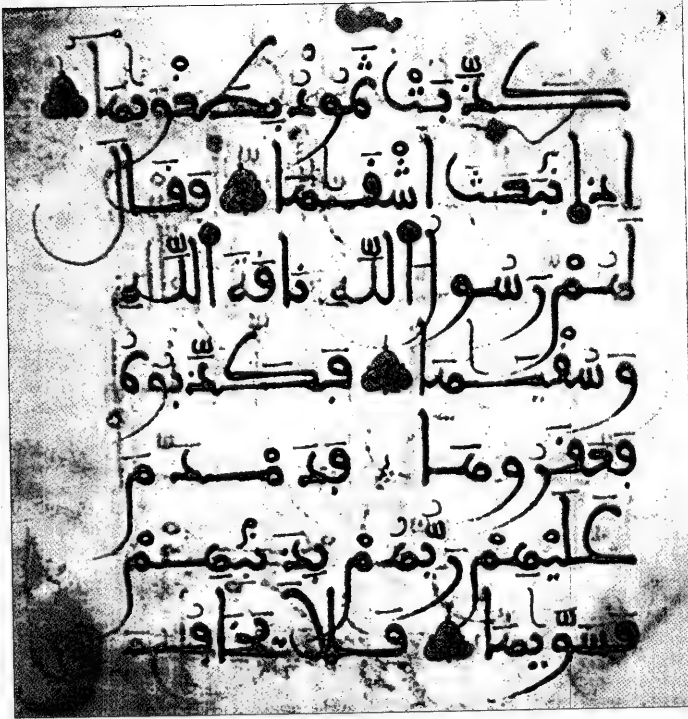 كَذَّبَتْ ثَمُودُ بِطَغْوَيٰهَا
إِذِ اِنۢبَعَثَ أَشْقَيٰهَا فَقَالَ
لَهُمْ رَسُولُ اُللَّهِ نَاقَةَ اَللَّهِ
وَسُقْيَٰهَا فَكَذَّبُوهُ
فَعَقَرُوهَا فَدَمْدَمَ
عَلَيْهِمْ رَبُّهُمْ بِذَنۢبِهِمْ
فَسَوَّيٰهَا فَلَا يَخَافُ